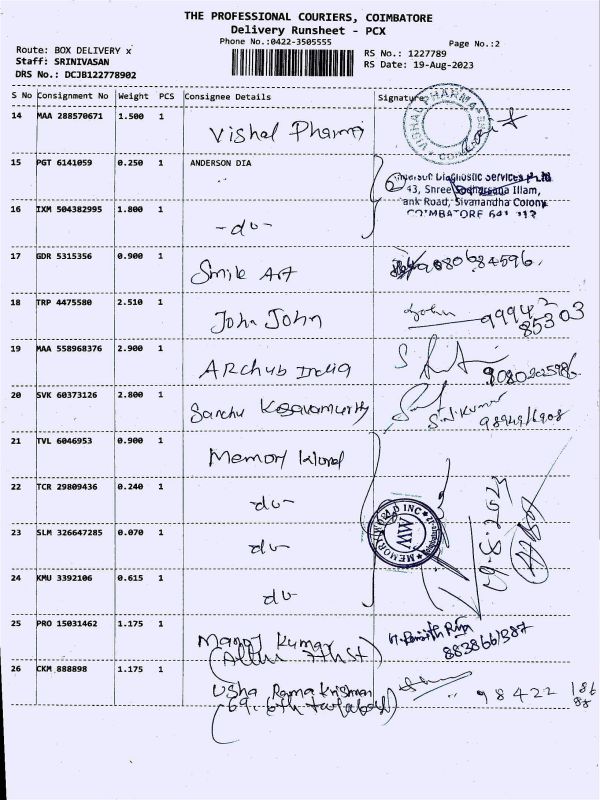 THE PROFESSIONAL COURIERS, COIMBATORE
Delivery Runsheet - PCX
Phone No.:0422-3505555
Page No.:2
Route: BOX DELIVERY x
Staff: SRINIVASAN
DRS No.: DCJB122778902
RS No.: 1227789
RS Date: 19-Aug-2023
S No Consignment No Weight PCS Consignee Details Signature
14 MAA 288570671 1.500 1 Vishal Pharma
VISHAL PHARMA
15 PGT 6141059 0.250 1 ANDERSON DIA
Diagnostic Services
43, Shree Illam,
ank Road, Sivanandha Colony
COIMBATORE 641
16 IXM 504382995 1.800 1 -do-
17 GDR 5315356 0.900 1 Smile Art 9080684596.
18 TRP 4475580 2.510 1 John John John 99942
85303
19 MAA 558968376 2.900 1 Archub India
9080205986
20 SVK 60373126 2.800 1 Kesavamurthy
S.N.Kumar
21 TVL 6046953 0.900 1 Memory World
22 TCR 29809436 0.240 1 do-
MEMORY WORLD INC
MW
23 SLM 326647285 0.070 1 do-
24 KMU 3392106 0.615 1 do-
25 PRO 15031462 1.175 1 Manoj Kumar
26 CKM 888898 1.175 1 Usha Rama Krishnan
98422 186
88